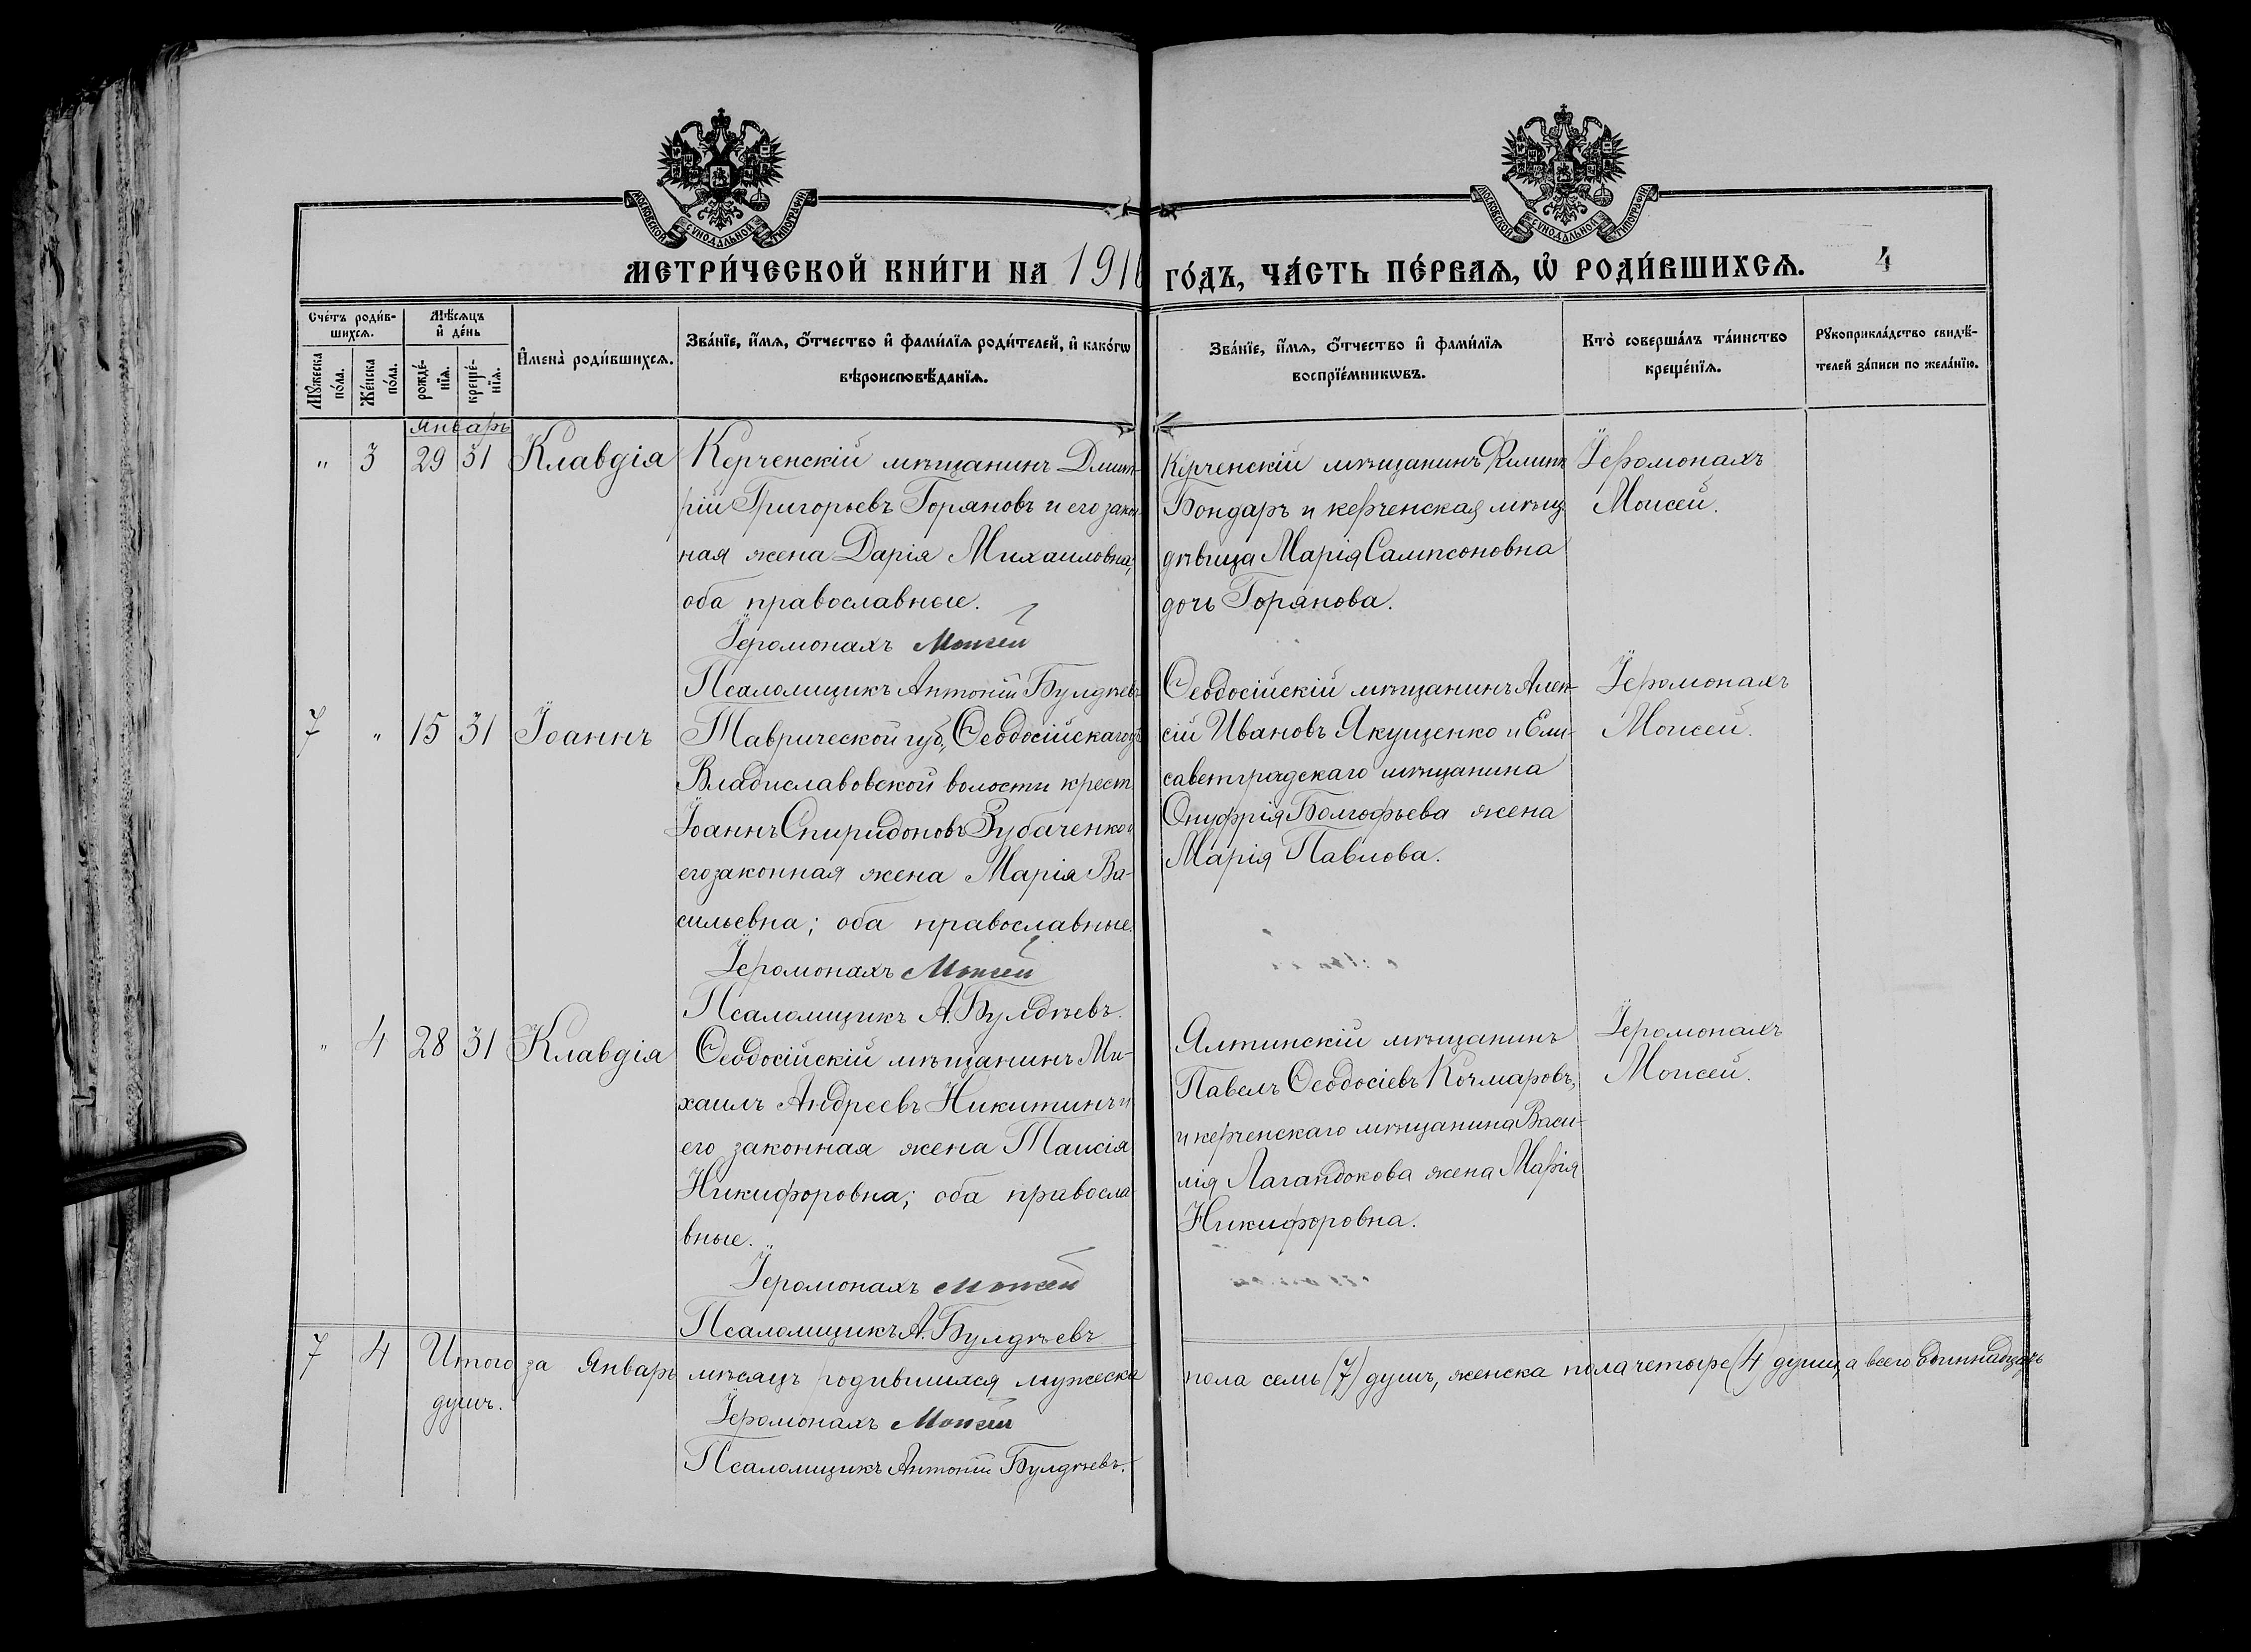 МОСКОВСКОЙ СѴНОДАЛЬНОЙ ТИПОГРАФІИ
МОСКОВСКОЙ СѴНОДАЛЬНОЙ ТИПОГРАФІИ
МЕТРИ́ЧЕСКОЙ КНИ́ГИ НА 1916 ГО́ДЪ, ЧА́СТЬ ПЕ́РВАѦ, Ѽ РОДИ́ВШИХСѦ. 4
Сче́тъ роди́в-
шихсѧ.
Мꙋ́жеска
по́ла.
Же́нска
по́ла.
Мѣ́сѧцъ
и҆ де́нь
рожде́-
нїѧ.
креще́-
нїѧ.
И҆мена̀ роди́вшихсѧ.
Зва́нїе, и҆́мѧ, ѻ҆́тчество и҆ фами́лїѧ роди́телей, и҆ како́гѡ
вѣроисповѣ́данїѧ.
Зва́нїе, и҆́мѧ, ѻ҆́тчество и҆ фами́лїѧ
воспрїе́мникѡвъ.
Кто̀ соверша́лъ та́инство
креще́нїѧ.
Рꙋкоприкла́дство свидѣ́-
телей за́писи по жела́нїю.
Январь
" 3 29 31 Клавдія
Керченскій мѣщанинъ Дмит-
рій Григорьевъ Горяновъ и его закон-
ная жена Дарія Михаиловна;
оба православные.
Іеромонахъ Моисей
Псаломщикъ Антоній Булдѣевъ
Керченскій мѣщанинъ
Бондаръ и керченская мѣщ.
дѣвица Марія Сампсоновна
дочь Горянова.
Іеромонахъ
Моисей.
7 " 15 31 Іоаннъ
Таврической губ., Ѳеодосійскаго у.
Владиславовской волости крест.
Іоаннъ Спиридоновъ Зубаченко и
его законная жена Марія Ва-
сильевна; оба православные.
Іеромонахъ Моисей
Псаломщикъ А. Булдѣевъ.
Ѳеодосійскій мѣщанинъ Алек-
сій Ивановъ Якущенко и Ели-
саветградскаго мѣщанина
Онуфрія жена
Марія Павлова.
Іеромонахъ
Моисей.
" 4 28 31 Клавдія
Ѳеодосійскій мѣщанинъ Ми-
хаилъ Андреевъ Никитинъ и
его законная жена Таисія
Никифоровна; оба правосла-
вные.
Іеромонахъ Моисей
Псаломщикъ А. Булдѣевъ
Ялтинскій мѣщанинъ
Павелъ Ѳеодосіевъ Кочмаровъ,
и керченскаго мѣщанина Васи-
лія Лагандокова жена Марія
Никифоровна.
Іеромонахъ
Моисей.
7 4 Итого за Январь мѣсяцъ родившихся мужеска пола семь (7) душъ, женска пола четыре (4) душъ, а всего одиннадцать
душъ.
Іеромонахъ Моисей
Псаломщикъ Антоній Булдѣевъ.